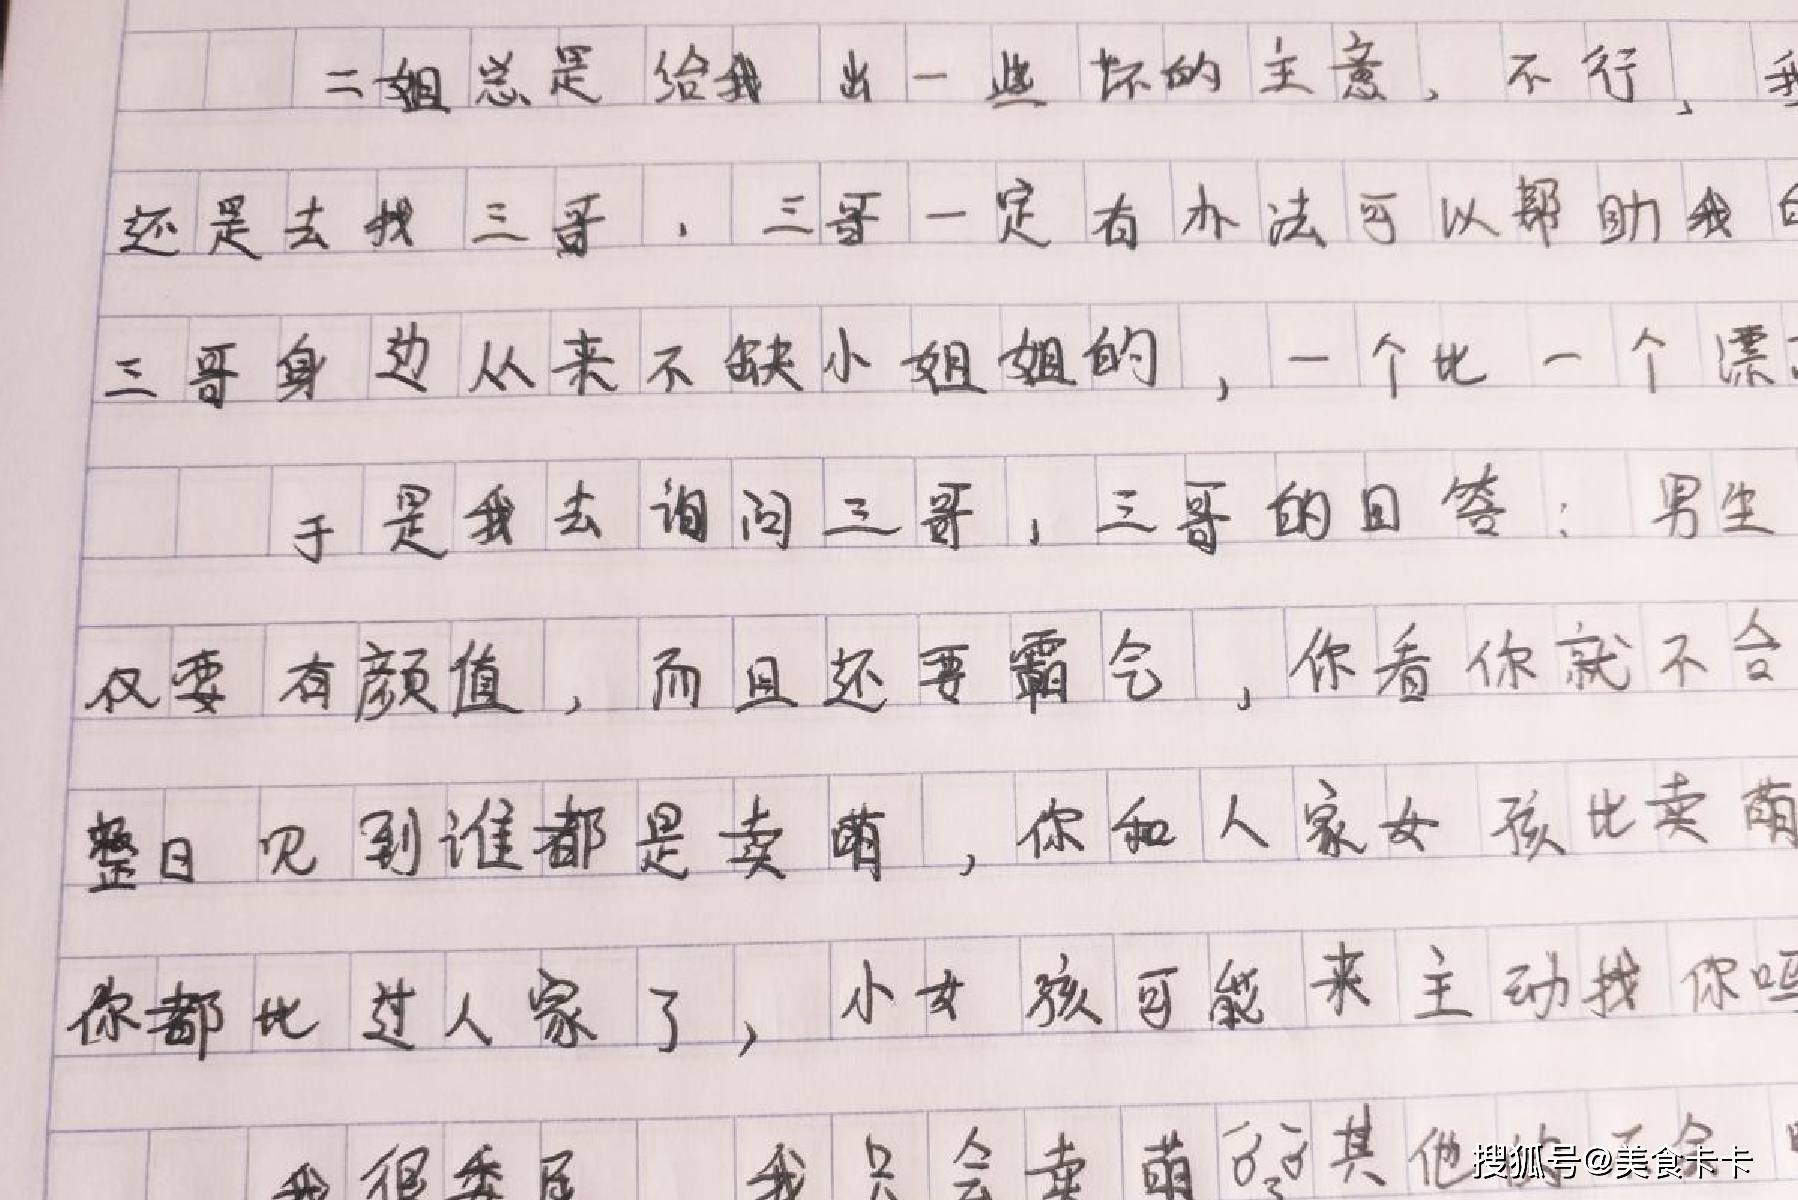 二姐总是给我出一些坏的主意，不行，我
还是去找三哥，三哥一定有办法可以帮助我
三哥身边从来不缺小姐姐的，一个比一个漂
于是我去询问三哥，三哥的回答：男生
仅要有颜值，而且还要霸气，你看你就不合
整日见到谁都是卖萌，你和人家女孩比卖萌
你都比过人家了，小女孩可能来主动找你吗
我很委屈 我只会卖萌 其他的不会
搜狐号@美食卡卡